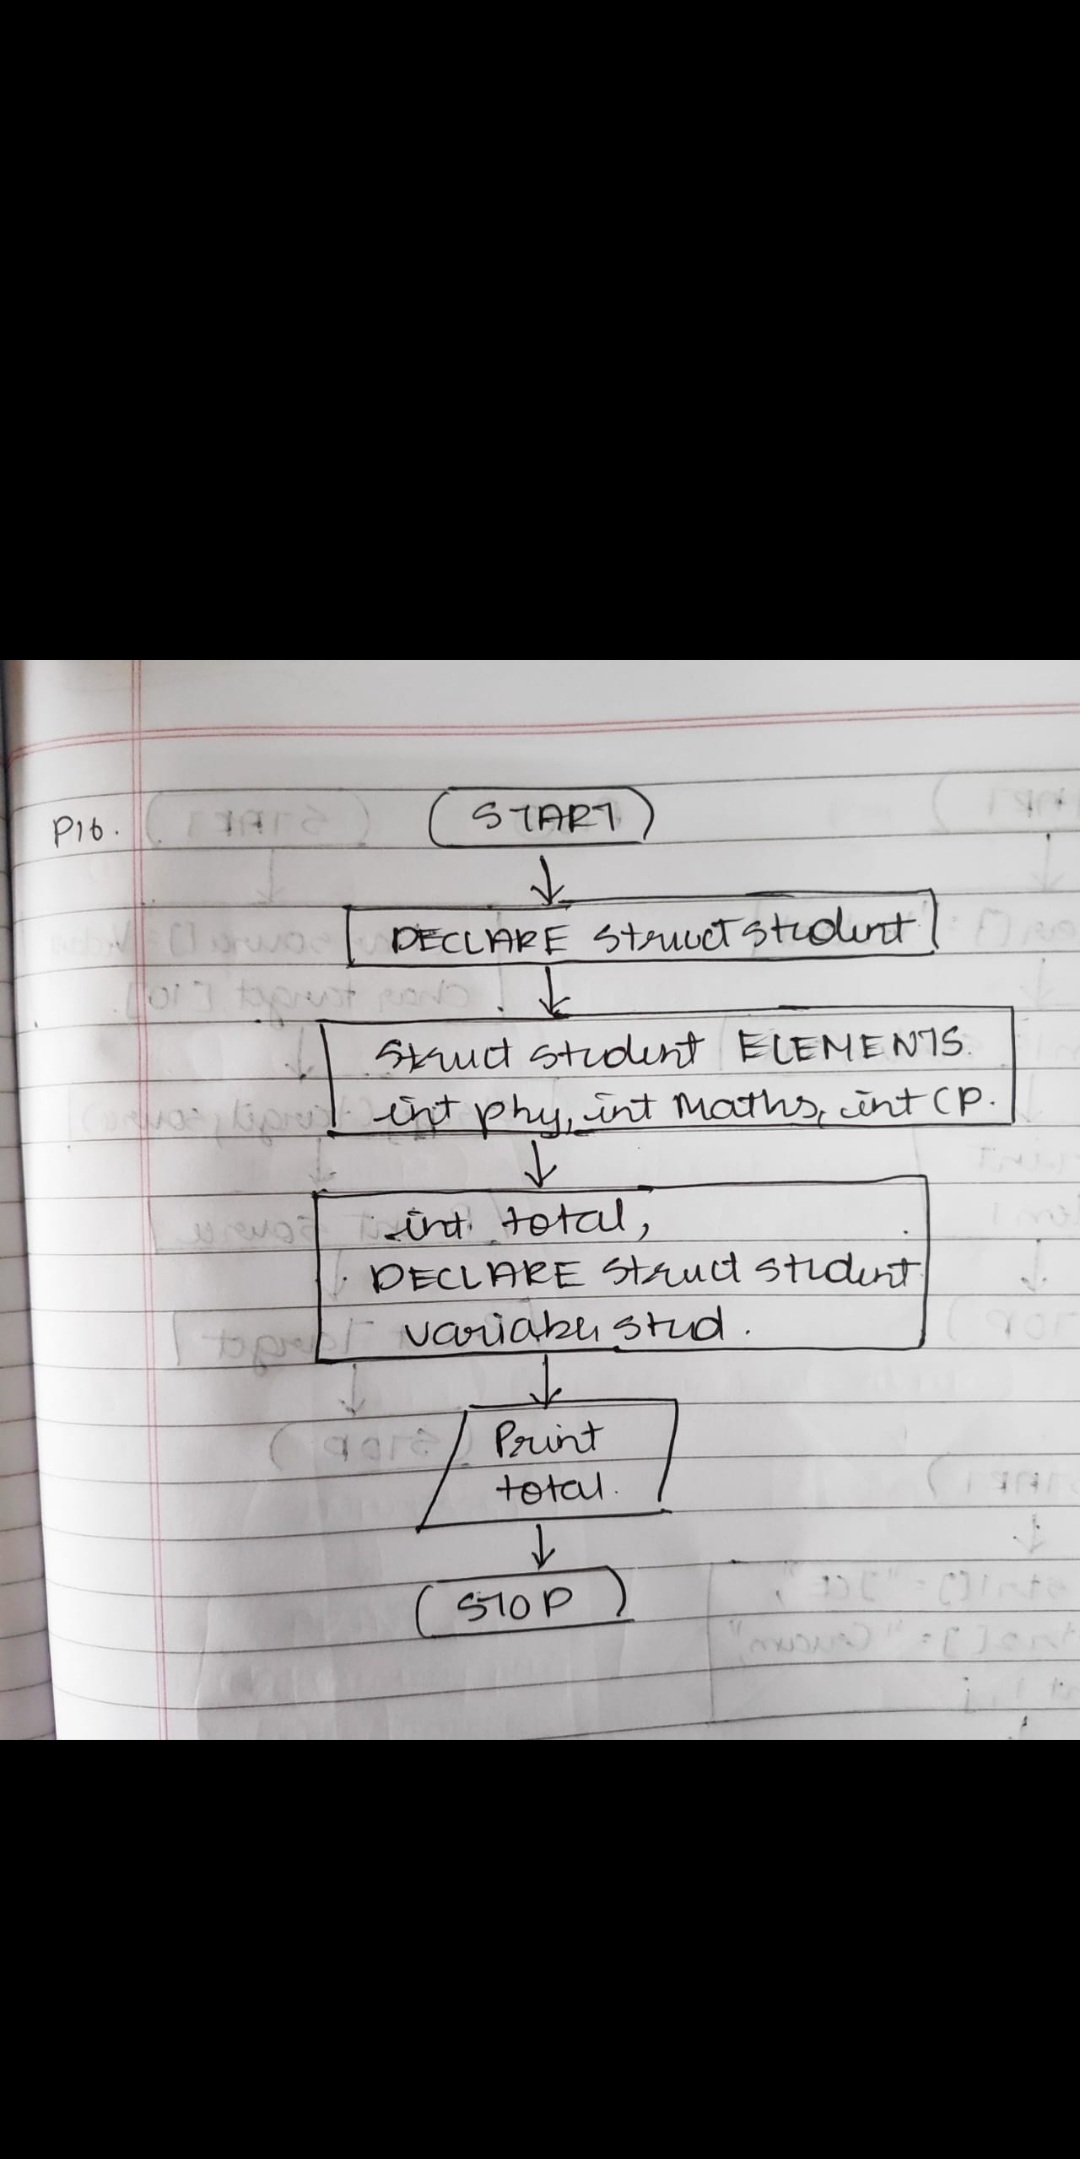 P16.
START
DECLARE struct student
struct student ELEMENTS.
int phy, int Maths, int CP.
int total,
DECLARE struct student
stud.
Print
total.
STOP